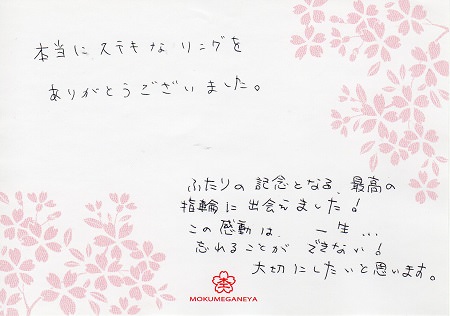 本当にステキなリングを
ありがとうございました。
ふたりの記念となる、最高の
指輪に出会えました!
この感動は、一生...
忘れることができない!
大切にしたいと思います。
MOKUMEGANEYA